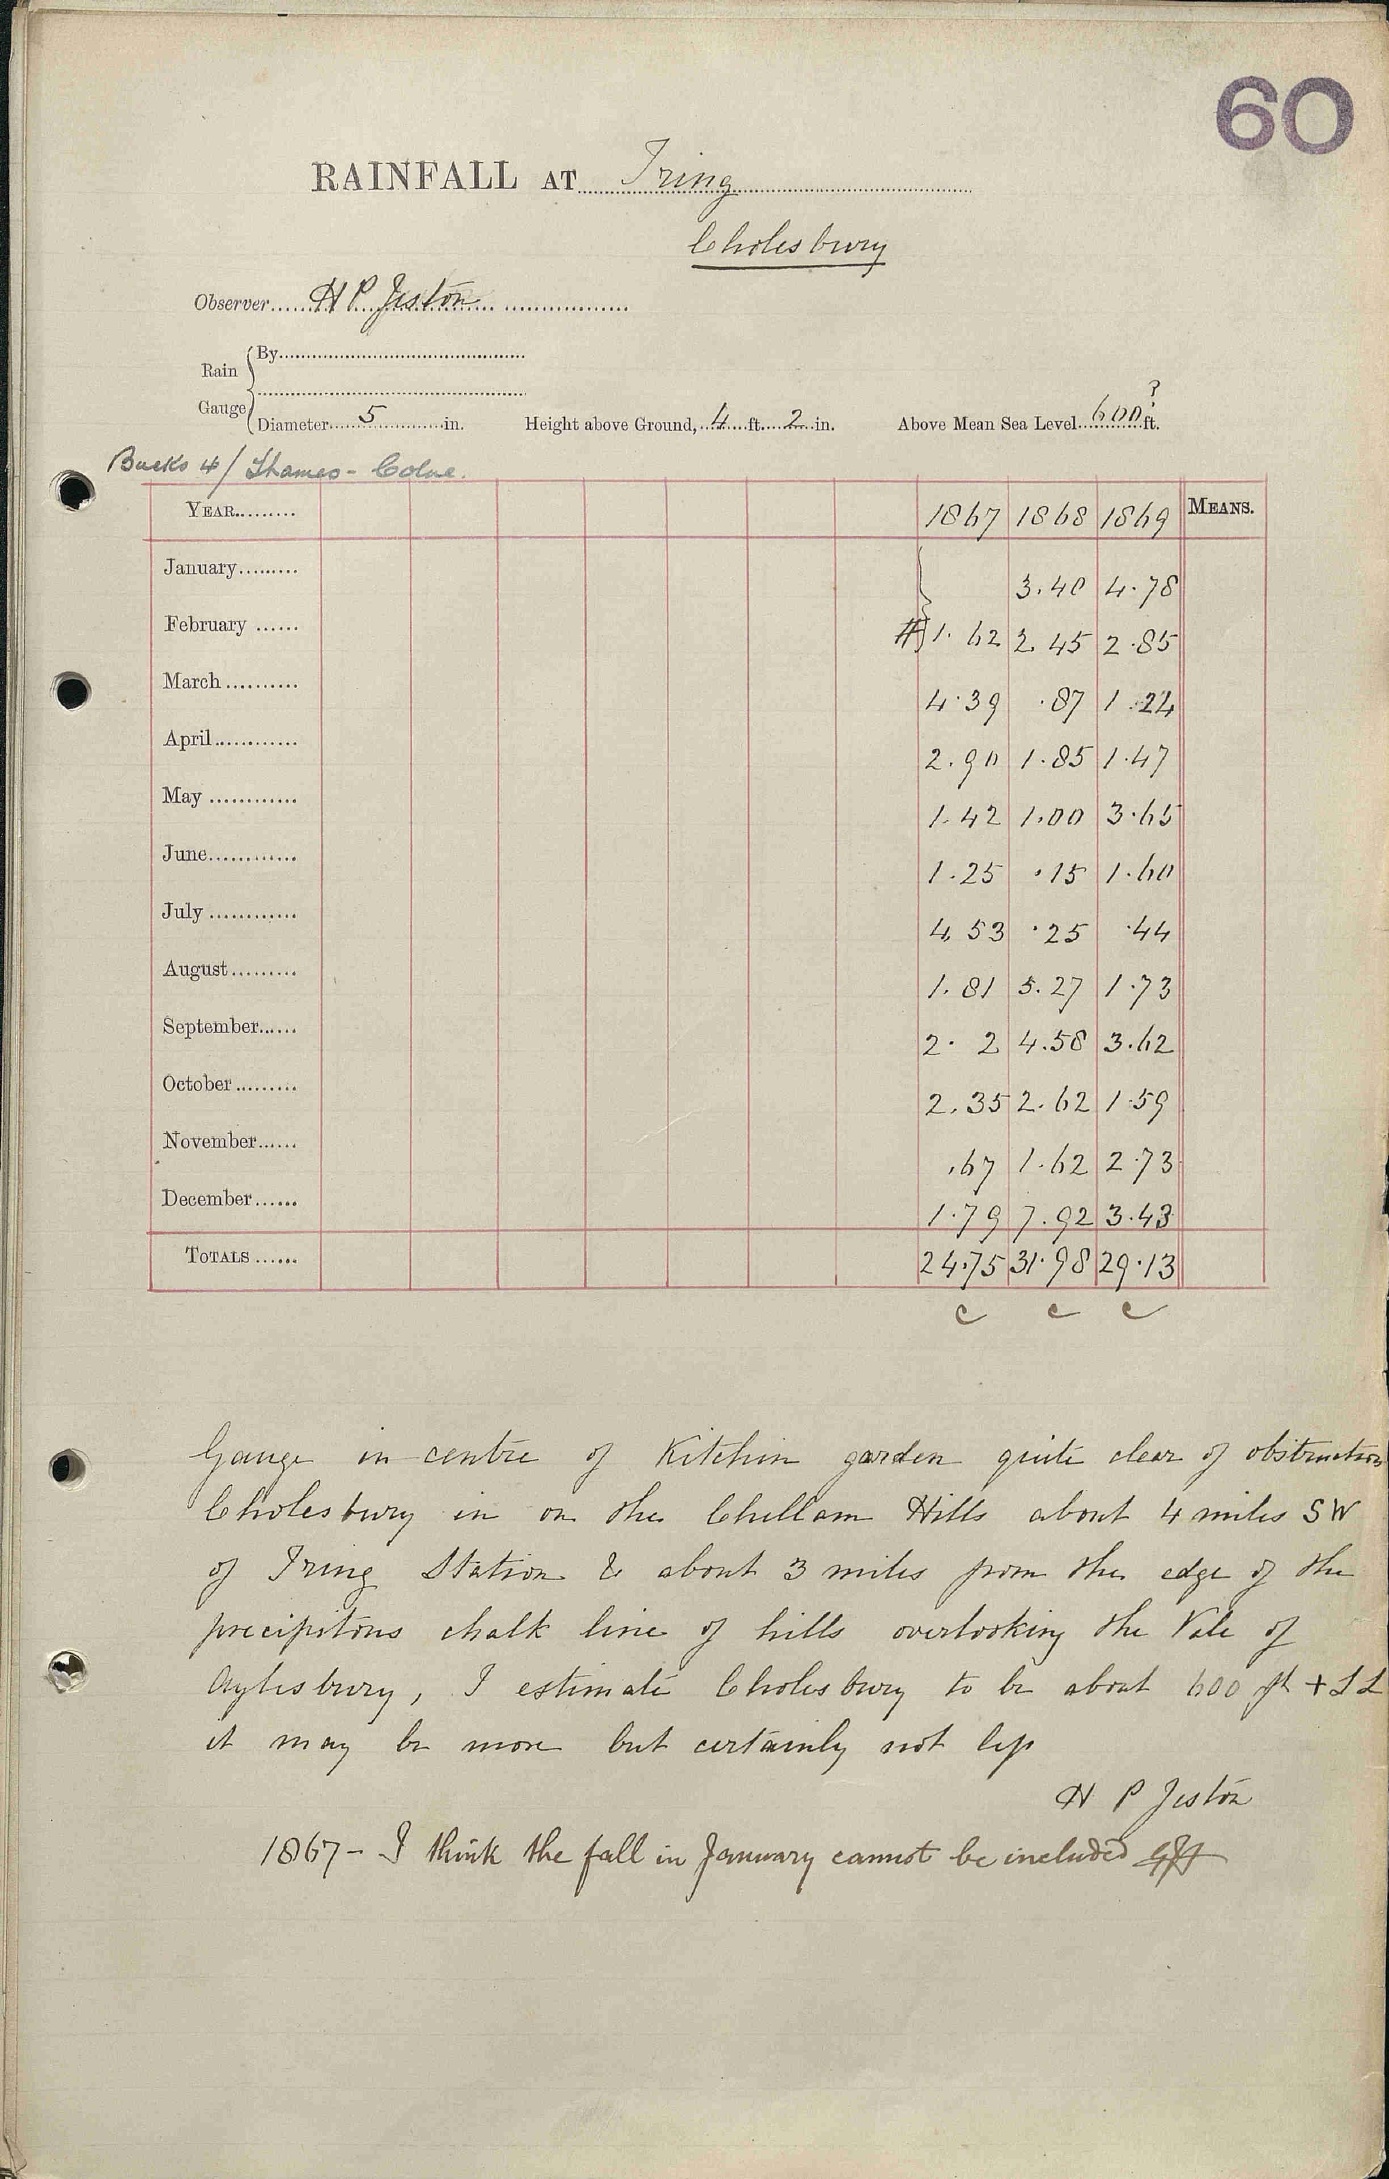 60
RAINFALL AT Tring
Cholesbury
Observer H P Jeston
Rain Gauge
By
Diameter 5 in. Height above Ground, 4 ft. 2 in. Above Mean Sea Level 600 ft. ?
Bucks 4 / Thames - Colne.
YEAR 1867 1868 1869 MEANS.
January 3.40 4.78
February # 1.62 2.45 2.85
March 4.39 .87 1.24
April 2.90 1.85 1.47
May 1.42 1.00 3.65
June 1.25 .15 1.60
July 4.53 .25 .44
August 1.81 5.27 1.73
September 2. 2 4.58 3.62
October 2.35 2.62 1.59
November .67 1.62 2.73
December 1.79 7.92 3.43
TOTALS 24.75 31.98 29.13
c c c
Gauge in centre of Kitchin garden quite clear of obstruction
Cholesbury in on the Hills about 4 miles SW
of Tring Station & about 3 miles from the edge of the
precipitous chalk line of hills overlooking the Vale of
Aylesbury, I estimate Cholesbury to be about 600 ft +
it may be more but certainly not less
H P Jeston
1867 - I think the fall in January cannot be included